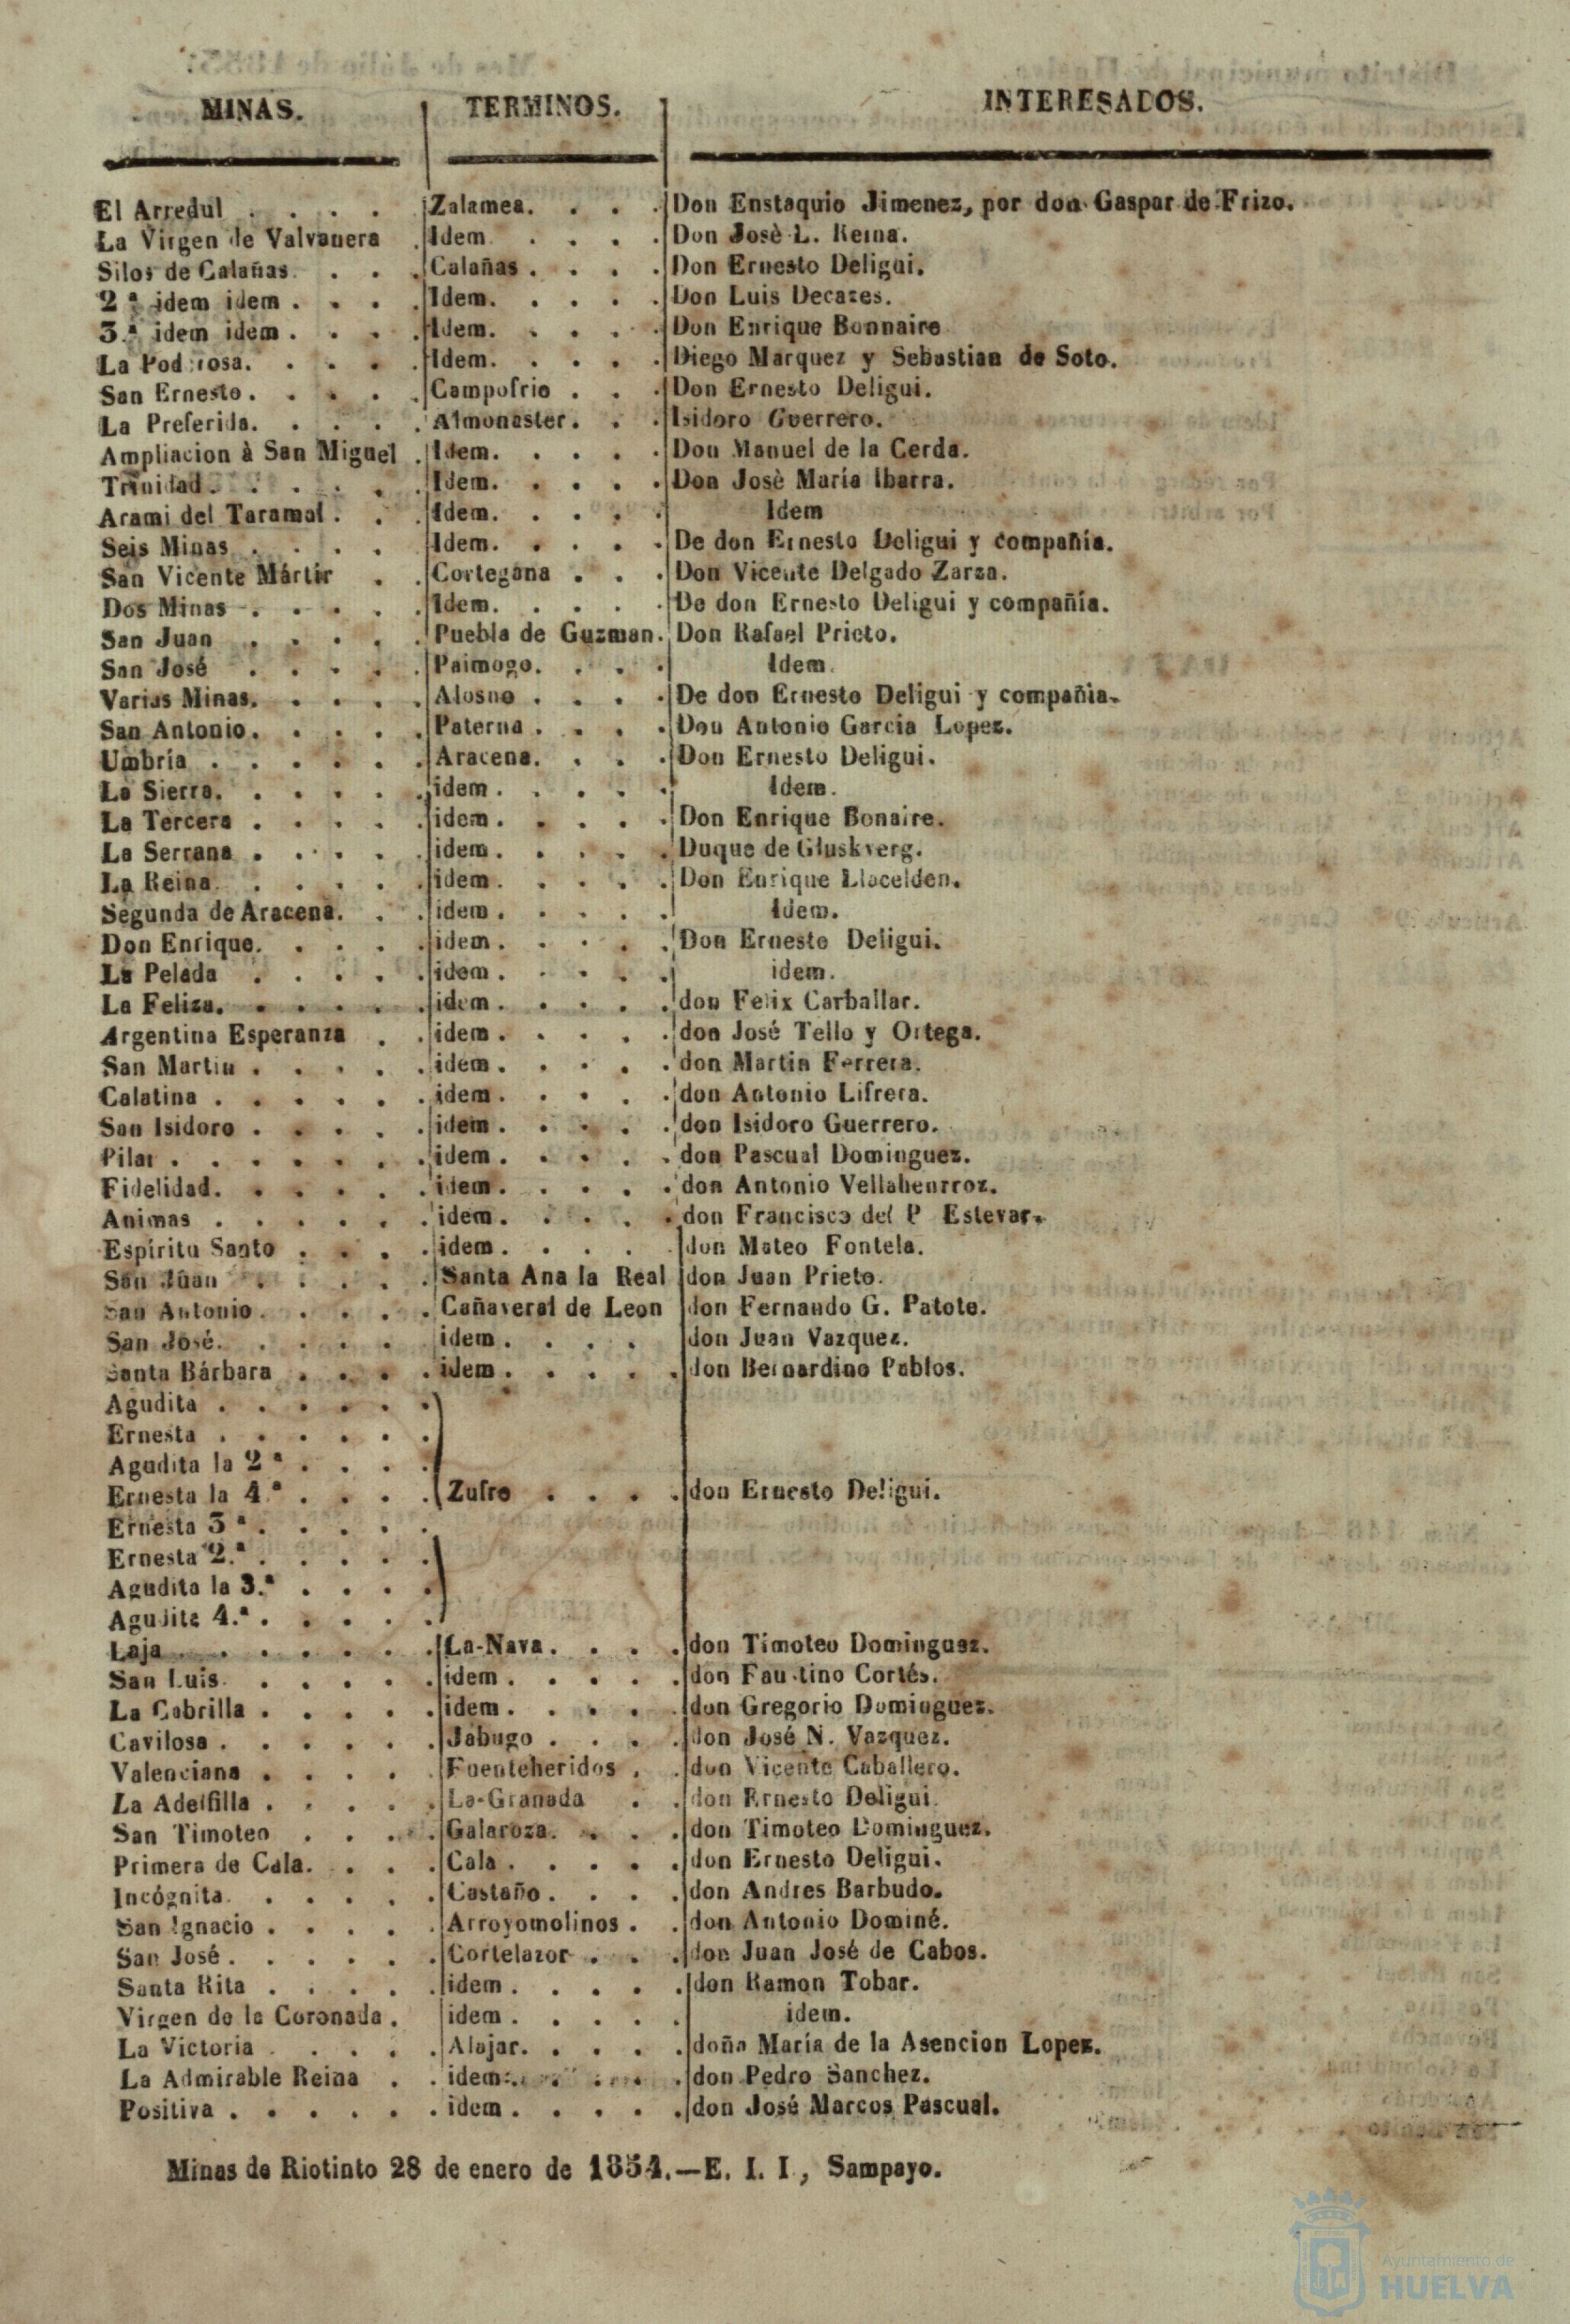 MINAS. TERMINOS. INTERESADOS.
El Arredul . . . . Zalamea. . . . Don Enstaquio Jimenez, por don Gaspar de Frizo.
La Virgen de Valvanera . Idem . . . . Don Josè L. Reina.
Silos de Calañas. . . . Calañas . . . . Don Ernesto Deligui.
2.ª idem idem . . . . Idem. . . . . Don Luis Decazes.
3.ª idem idem . . . . Idem. . . . . Don Enrique Bonnaire
La Poderosa. . . . . Idem. . . . . Diego Marquez y Sebastian de Soto.
San Ernesto. . . . . Campofrio . . . Don Ernesto Deligui.
La Preferida. . . . . Almonaster. . . Isidoro Guerrero.
Ampliacion à San Miguel . Idem. . . . . Don Manuel de la Cerda.
Trinidad. . . . . . Idem. . . . . Don Josè María Ibarra.
Arami del Taramal . . . Idem. . . . . Idem
Seis Minas . . . . Idem. . . . . De don Ernesto Deligui y compañia.
San Vicente Mártir . . Cortegana . . . Don Vicente Delgado Zarza.
Dos Minas . . . . . Idem. . . . . De don Ernesto Deligui y compañía.
San Juan . . . . . Puebla de Guzman. Don Rafael Prieto.
San José . . . . . Paimogo. . . . Idem.
Varias Minas. . . . . Alosno . . . . De don Ernesto Deligui y compañia.
San Antonio. . . . . Paterna . . . . Don Antonio Garcia Lopez.
Umbría . . . . . . Aracena. . . . Don Ernesto Deligui.
La Sierra. . . . . . idem . . . . . Idem.
La Tercera . . . . . idem. . . . . Don Enrique Bonaire.
La Serrana . . . . . idem. . . . . Duque de Gluskverg.
La Reina . . . . . idem. . . . . Don Enrique Llacelden.
Segunda de Aracena. . . idem . . . . . Idem.
Don Enrique. . . . . idem . . . . . Don Ernesto Deligui.
La Pelada . . . . . idem . . . . . idem.
La Feliza. . . . . . idem . . . . . don Felix Carballar.
Argentina Esperanza . idem . . . . . don José Tello y Ortega.
San Martin . . . . . idem . . . . . don Martin Ferrera.
Calatina . . . . . . idem. . . . . don Antonio Lifrera.
San Isidoro . . . . . idem . . . . . don Isidoro Guerrero.
Pilar . . . . . . . idem . . . . . don Pascual Dominguez.
Fidelidad. . . . . . idem. . . . . don Antonio Vellahenrroz.
Animas . . . . . . idem. . . . . don Francisco del P Estevar.
Espíritu Santo . . . . idem. . . . . don Mateo Fontela.
San Juan . . . . . Santa Ana la Real don Juan Prieto.
San Antonio . . . . . Cañaveral de Leon don Fernando G. Patote.
San José. . . . . idem . . . . don Juan Vazquez.
Santa Bárbara . . . . idem . . . . . don Bernardino Pablos.
Agudita . . . . . .
Ernesta . . . . . .
Agudita la 2ª . . . .
Ernesta la 4.ª . . . . Zufre . . . . don Ernesto Deligui.
Ernesta 3ª . . . . .
Ernesta 2.ª . . . . .
Agudita la 3.ª . . . .
Agudita 4.ª . . . . .
Laja . . . . . . . La-Nava. . . . don Timoteo Dominguez.
San Luis. . . . . . idem . . . . . don Faustino Cortés.
La Cabrilla . . . . . idem. . . . . don Gregorio Dominguez.
Cavilosa . . . . . . Jabugo . . . . don José N. Vazquez.
Valenciana . . . . Fuenteheridos . . don Vicente Caballero.
La Adelfilla . . . . . La-Granada . . don Ernesto Deligui.
San Timoteo . . . . Galaroza. . . . don Timoteo Dominguez.
Primera de Cala. . . . Cala . . . . . don Ernesto Deligui.
Incógnita. . . . . . Castaño . . . . don Andres Barbudo.
San Ignacio . . . . . Arroyomolinos . . don Antonio Dominé.
San José . . . . . . Cortelazor . . . don Juan José de Cabos.
Santa Rita . . . . . idem . . . . . don Ramon Tobar.
Virgen de la Coronada . idem . . . . . idem.
La Victoria . . . . . Alajar. . . . . doña María de la Asencion Lopez.
La Admirable Reina . . idem. . . . . don Pedro Sanchez.
Positiva . . . . . . idem . . . . . don José Marcos Pascual.
Minas de Riotinto 28 de enero de 1854.—E. I. I., Sampayo.
Ayuntamiento de
HUELVA